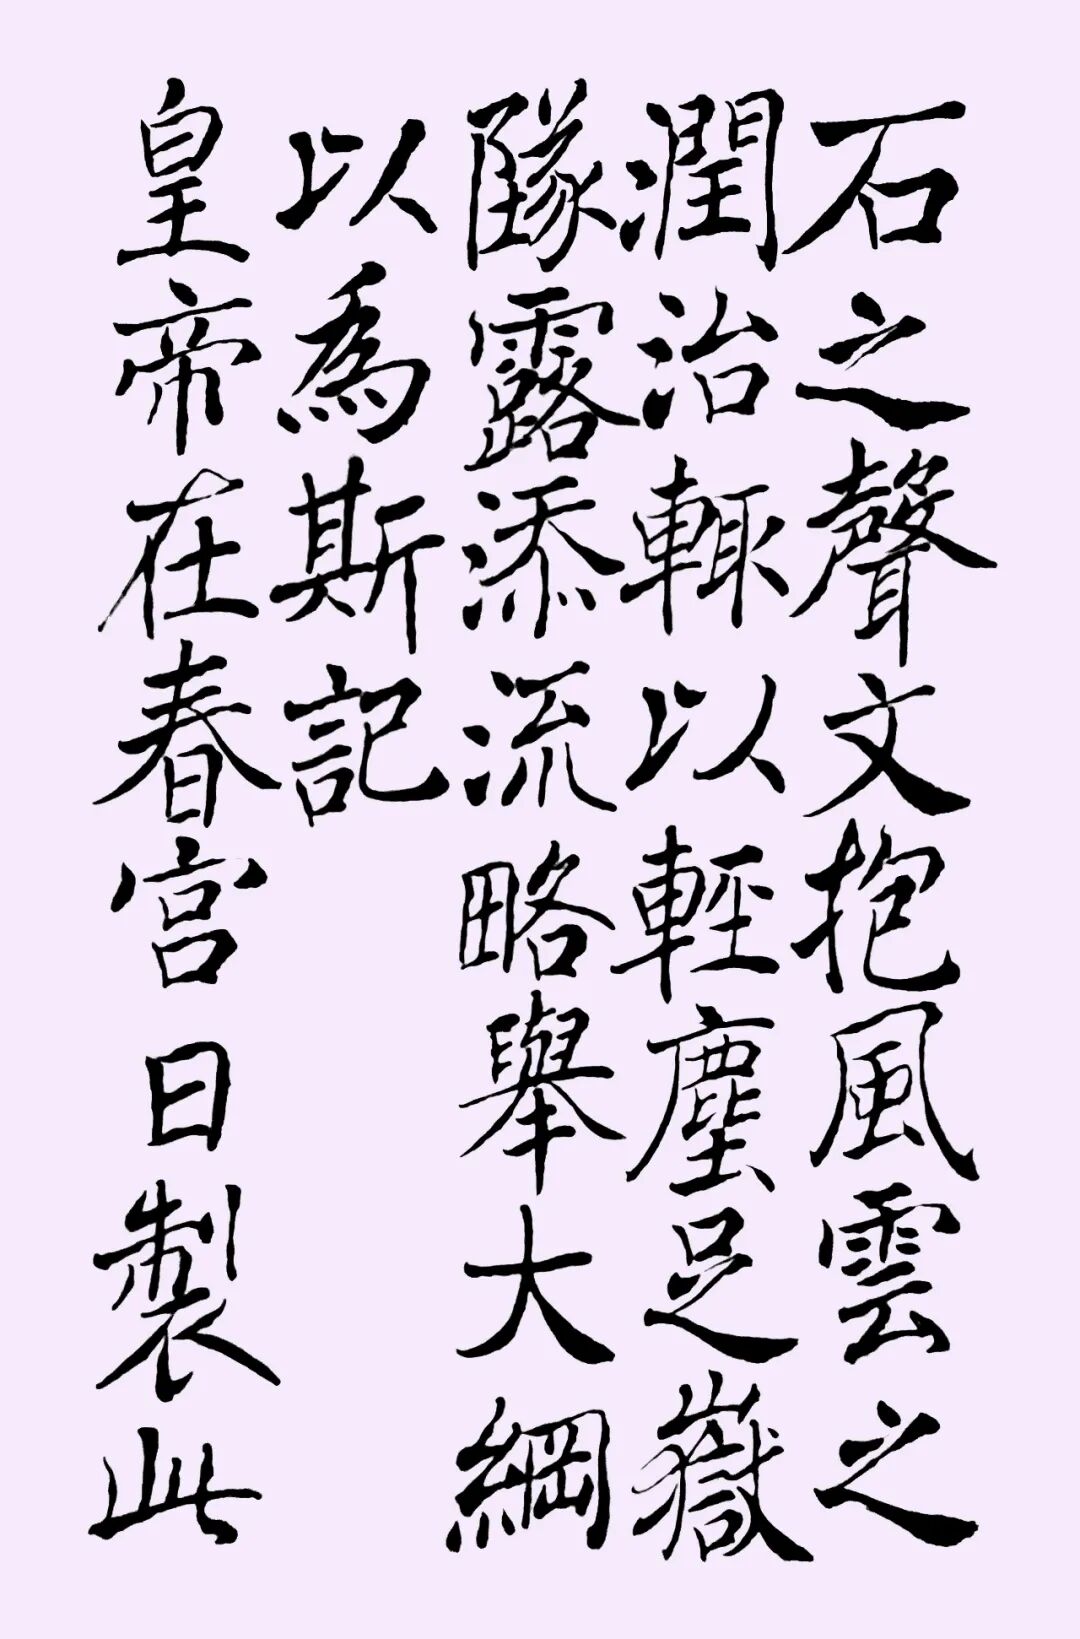 石之聲文抱風雲之
潤治輙以輕塵足嶽
隊露添流略舉大綱
以為斯記
皇帝在春宮日製此